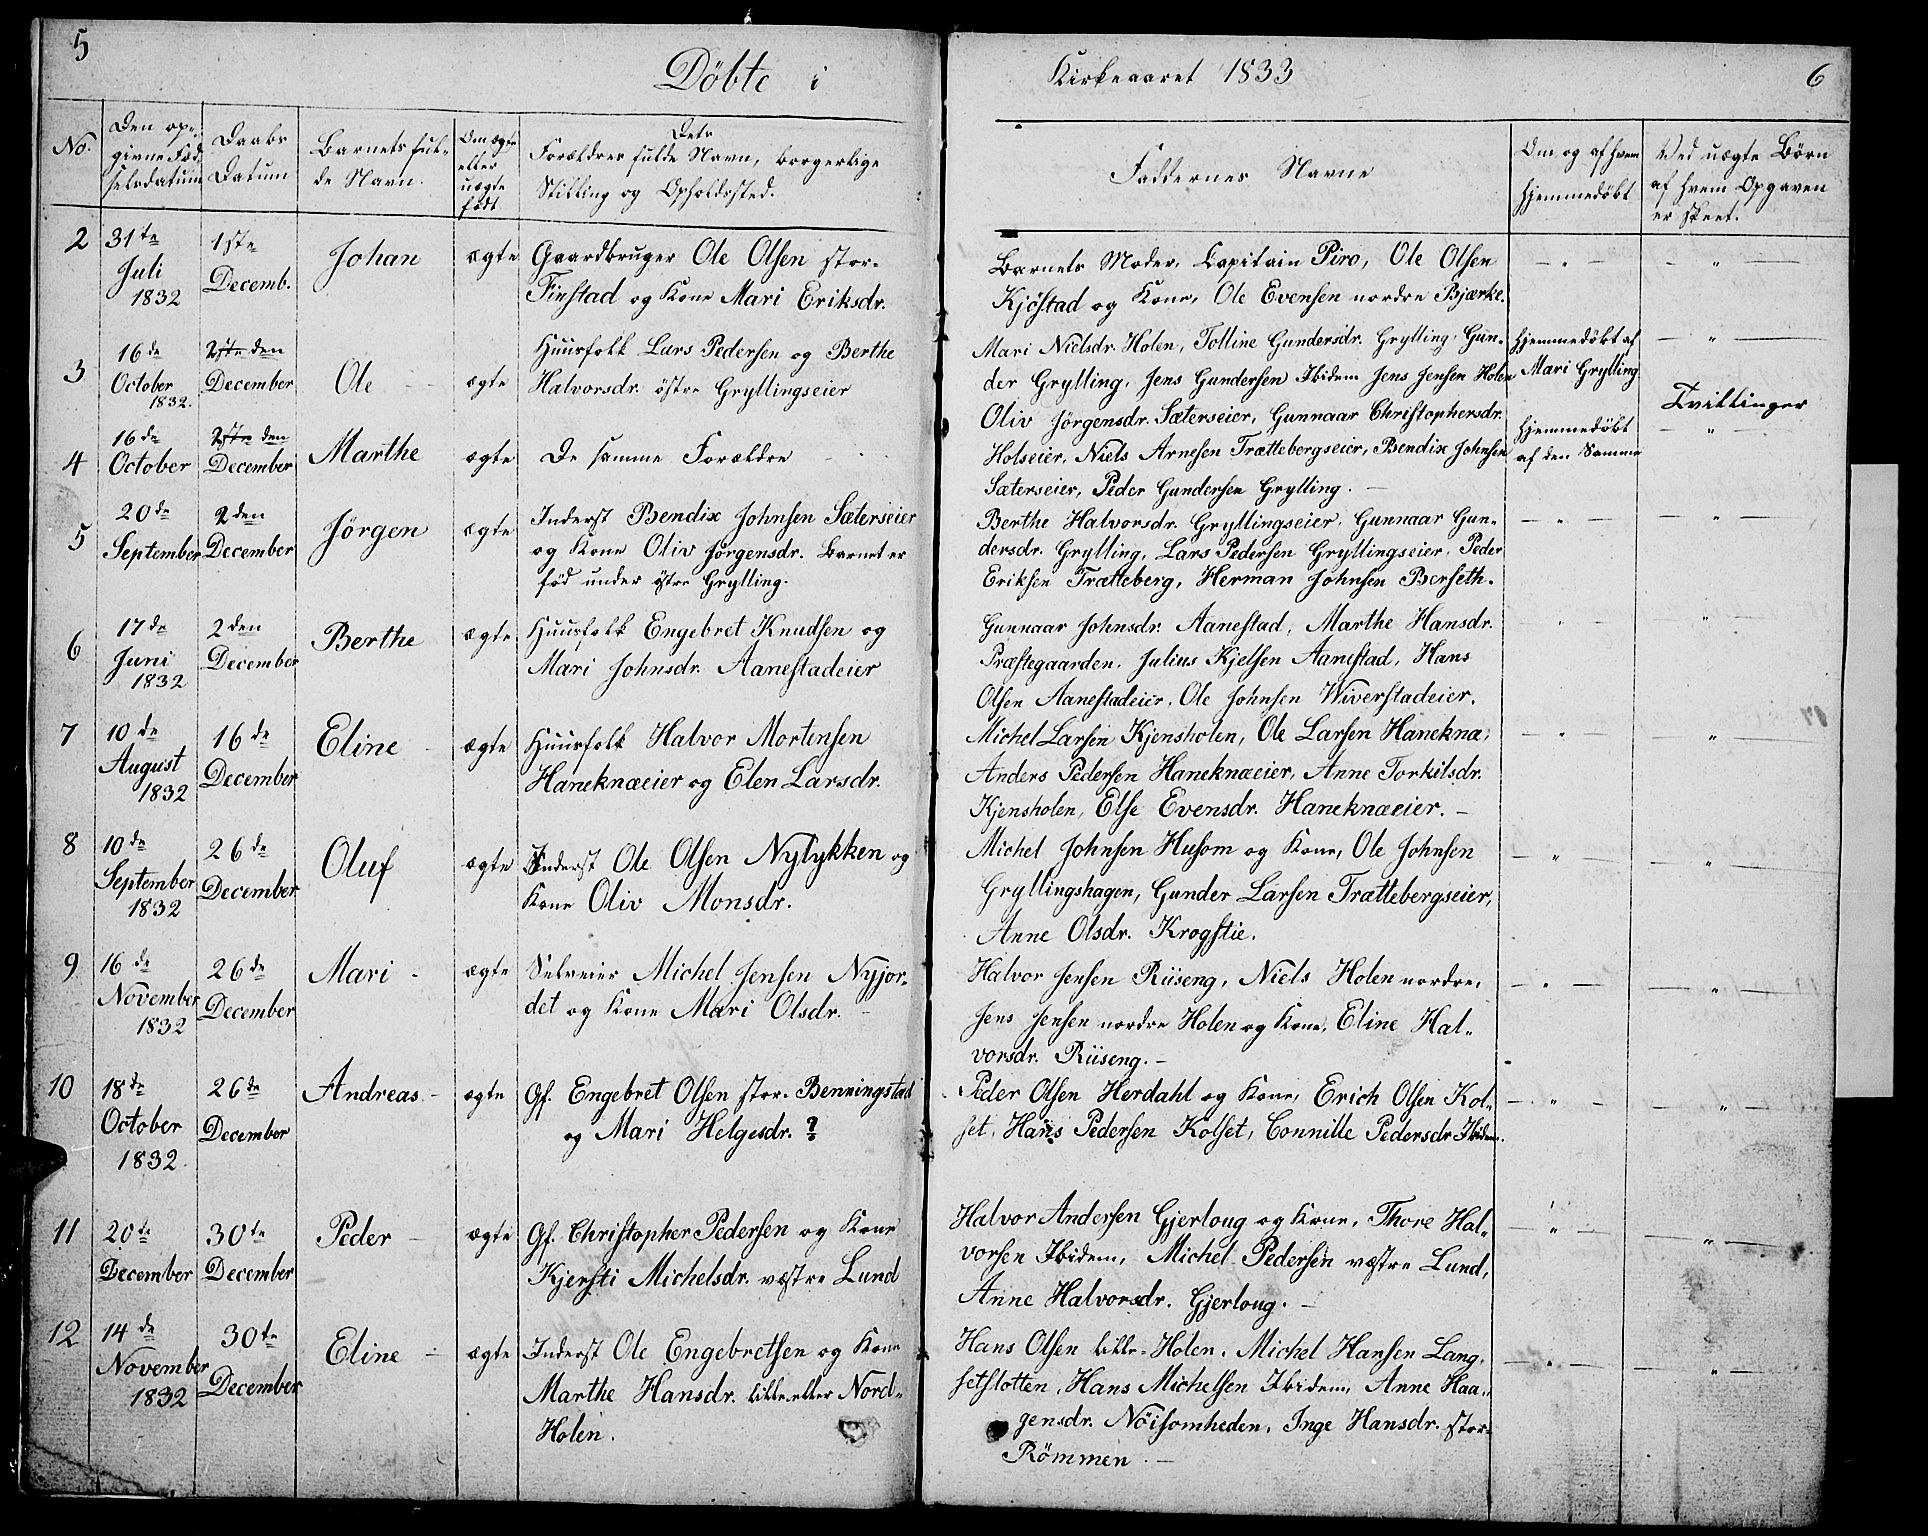 5
Döbte i
No.
Den op-
givne Föd-
selsdatum
Daabs
Datum
Barnets ful-
de Navn.
Om ægte
eller
uægte
födt
Dets
Forældres fulde Navn, borgerlige
Stilling og Opholdssted.
2
31te
Juli
1832
1ste
Decemb.
Johan
ægte
Gaardbruger Ole Olsen stor-
Finstad og Kone Mari Eriksdr.
3
16de
October
1832.
2den
December
Ole
ægte
Huusfolk Lars Pedersen og Berthe
Halvorsdr. östre Gryllingseier
4
16de
October
2den
December
Marthe
ægte
De samme Forældre
5
20de
September
2den
December
Jörgen
ægte
Inderst Bendix Johnsen Sæterseier
og Kone Oliv Jörgensdr. Barnet er
föd under östre Grylling.
6
17de
Juni
1832
2den
December
Berthe
ægte
Huusfolk Engebret Knudsen og
Mari Johnsdr. Aanestadeier
7
10de
August
1832
16de
December
Eline
ægte
Huusfolk Halvor Mortensen
Haneknæeier og Elen Larsdr.
8
10de
September
1832
26de
December
Oluf
ægte
Inderst Ole Olsen Nylykken og
Kone Oliv Monsdr.
9
16de
November
1832
26de
December
Mari
ægte
Selveier Michel Jensen Nyjor-
det og Kone Mari Olsdr.
10
18de
October
1832
26de
December
Andreas
ægte
Gf. Engebret Olsen stor-Benningstad
og Mari Helgesdr. ?
11
20te
December
30te
December
Peder
ægte
Gf. Christopher Pedersen og Kone
Kjersti Michelsdr. vestre Lund
12
14de
November
1832
30te
December
Eline
ægte
Inderst Ole Engebretsen og Kone
Marthe Hansdr. lille eller Nord-
Holen.
Kirkeaaret 1833
6
Faddernes Navne
Om og af hvem
hjemmedöbt
Ved uægte Börn
af hvem Opgaven
er skeet.
Barnets Moder, Capitain Piro, Ole Olsen
Kjöstad og Kone, Ole Evensen nordre Bjærke.
Mari Nielsdr. Holen, Tolline Gundersdr. Grylling, Gun-
der Grylling, Jens Gundersen Ibidem Jens Jensen Holen
hjemmedöbt af
Mari Grylling
Tvillinger
Oliv Jörgensdr. Sæterseier, Gunnaar Christophersdr.
Holseier, Niels Arnesen Trættebergseier, Bendix Johnsen
Sæterseier, Peder Gundersen Grylling.
hjemmedöbt
af den Samme
Berthe Halvorsdr. Gryllingseier, Gunnaar Gun-
dersdr. Grylling, Lars Pedersen Gryllingseier, Peder
Eriksen Trætteberg, Herman Johnsen Berseth.
Gunnaar Johnsdr. Aanestad, Marthe Hansdr.
Præstegaarden, Julius Kjelsen Aanestad, Hans
Olsen Aanestadeier, Ole Johnsen Wiverstadeier.
Michel Larsen Kjensholen, Ole Larsen Haneknæ,
Anders Pedersen Haneknæeier, Anne Torkilsdr.
Kjensholen, Else Evensdr. Haneknæeier.
Michel Johnsen Husom og Kone, Ole Johnsen
Gryllingshagen, Gunder Larsen Trættebergseier,
Anne Olsdr. Krogstie.
Halvor Jensen Riiseng, Niels Holen nordre,
Jens Jensen nordre Holen og Kone, Eline Hal-
vorsdr. Riiseng.
Peder Olsen Herdahl og Kone, Erich Olsen Kol-
set, Hans Pedersen Kolset, Connille Pedersdr Ibidem.
Halvor Andersen Gjerloug og Kone, Thore Hal-
vorsen Ibidem, Michel Pedersen vestre Lund,
Anne Halvorsdr. Gjerloug.
Hans Olsen lille-Holen, Michel Hansen Lang-
setslotten, Hans Michelsen Ibidem, Anne Haa-
gensdr. Nöisomheden, Inge Hansdr. stor-
Römmen